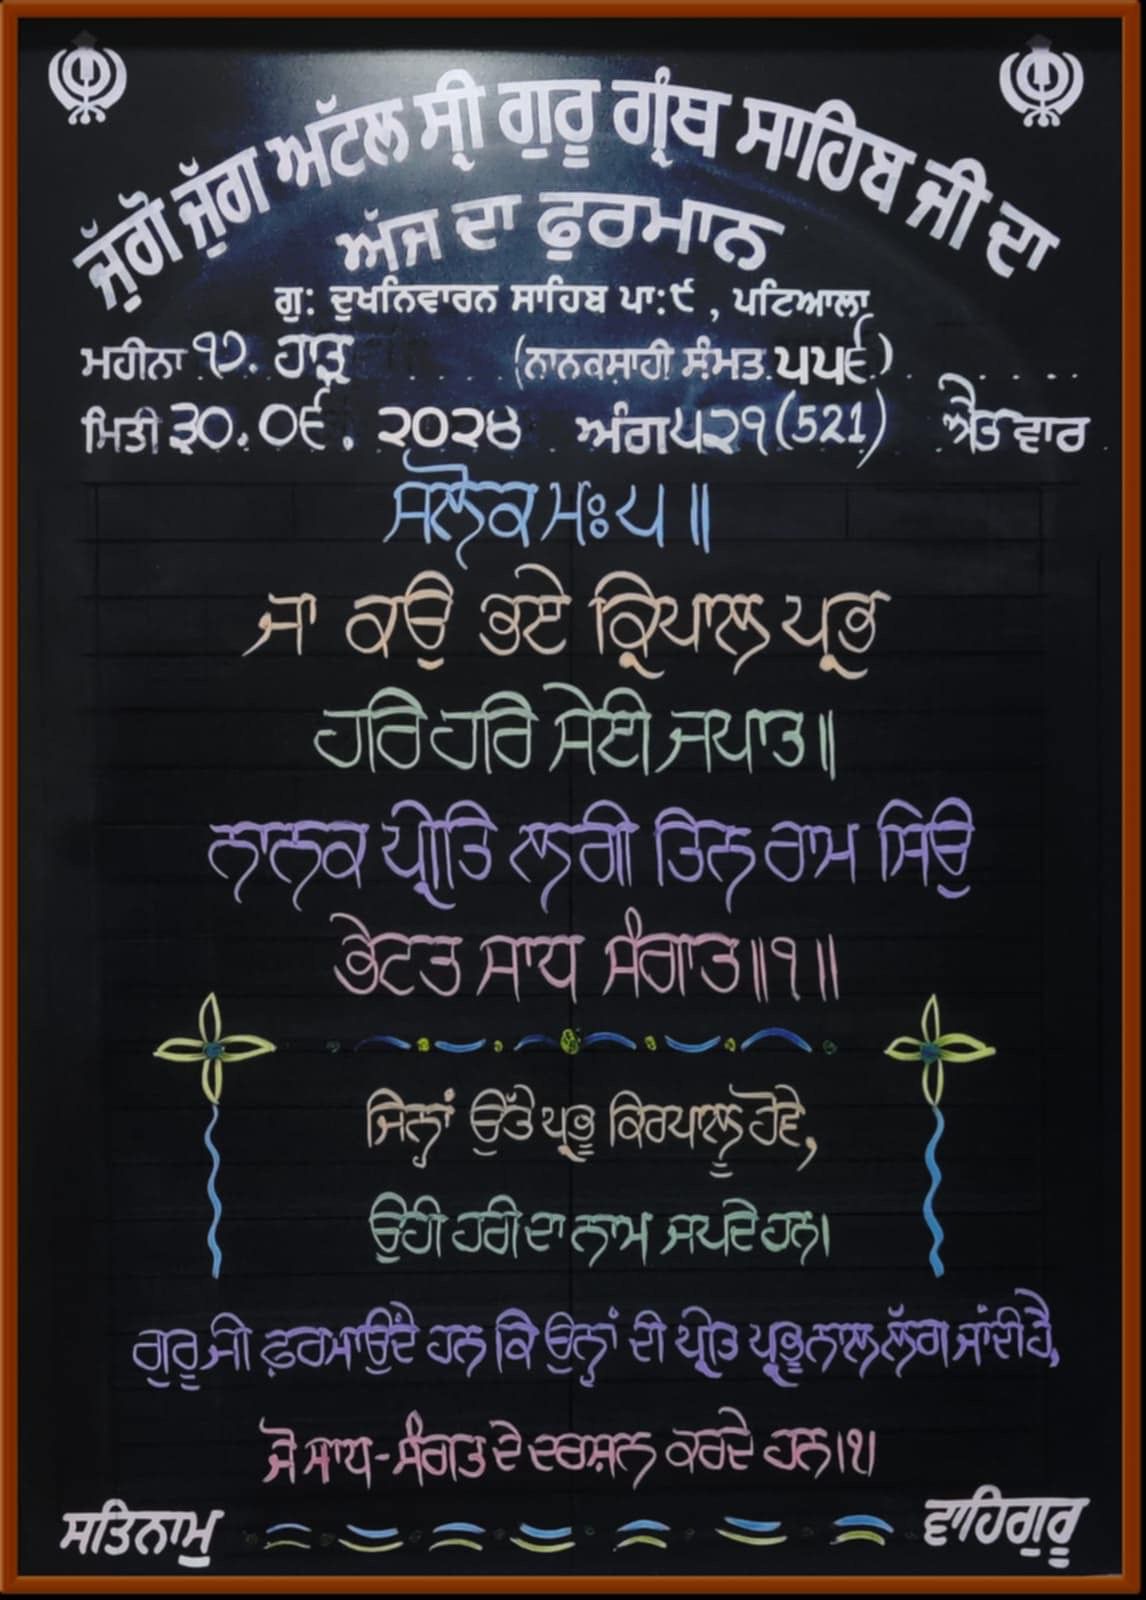 ਜੁੱਗੋ ਜੁੱਗ ਅਟੱਲ ਸ੍ਰੀ ਗੁਰੂ ਗ੍ਰੰਥ ਸਾਹਿਬ ਜੀ ਦਾ
ਅੱਜ ਦਾ ਫੁਰਮਾਨ
ਗੁ: ਦੁਖਨਿਵਾਰਨ ਸਾਹਿਬ ਪਾ:੯ , ਪਟਿਆਲਾ
ਮਹੀਨਾ ੧੭. ਹਾੜ (ਨਾਨਕਸ਼ਾਹੀ ਸੰਮਤ ੫੫੬)
ਮਿਤੀ ੩੦.੦੬. ੨੦੨੪ ਅੰਗ ੫੨੧ (521) ਐਤਵਾਰ
ਸਲੋਕ ਮਃ ੫ ॥
ਜਾ ਕਉ ਭਏ ਕ੍ਰਿਪਾਲ ਪ੍ਰਭ
ਹਰਿ ਹਰਿ ਸੇਈ ਜਪਾਤ॥
ਨਾਨਕ ਪ੍ਰੀਤਿ ਲਗੀ ਤਿਨ ਰਾਮ ਸਿਉ
ਭੇਟਤ ਸਾਧ ਸੰਗਾਤ॥੧॥
ਜਿਨ੍ਹਾਂ ਉੱਤੇ ਪ੍ਰਭੂ ਕਿਰਪਾਲੂ ਹੋਵੇ,
ਉਹੀ ਹਰੀ ਦਾ ਨਾਮ ਜਪਦੇ ਹਨ।
ਗੁਰੂ ਜੀ ਫ਼ਰਮਾਉਂਦੇ ਹਨ ਕਿ ਉਨ੍ਹਾਂ ਦੀ ਪ੍ਰੀਤ ਪ੍ਰਭੂ ਨਾਲ ਲੱਗ ਜਾਂਦੀ ਹੈ,
ਜੋ ਸਾਧ-ਸੰਗਤ ਦੇ ਦਰਸ਼ਨ ਕਰਦੇ ਹਨ।੧।
ਸਤਿਨਾਮੁ ਵਾਹਿਗੁਰੂ